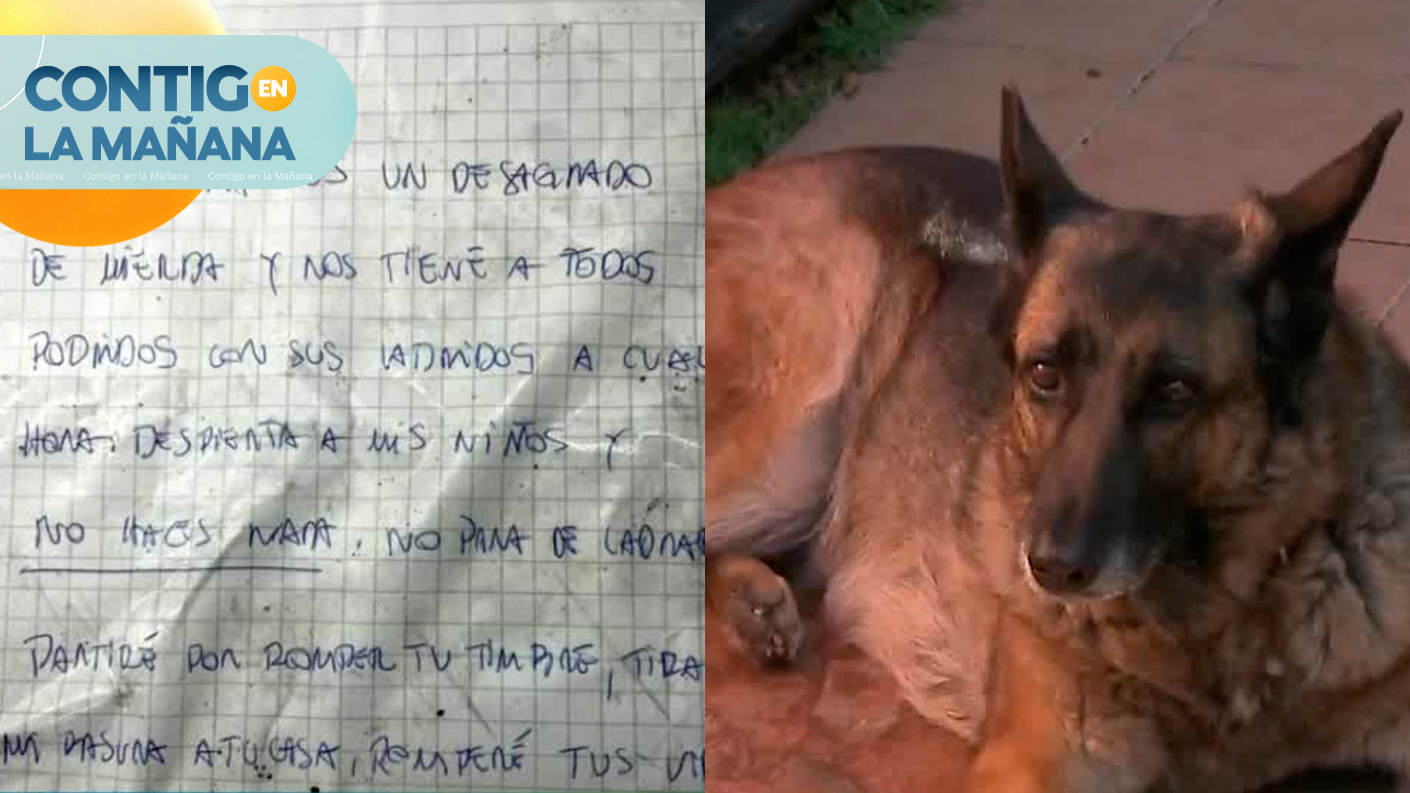 CONTIGO EN
LA MAÑANA
en la Mañana Contigo en la Mañana Contigo en la Mañana
UN DESAGRADO
DE MIERDA Y NOS TIENE A TODOS
PODRIDOS CON SUS LADRIDOS A CUAL
HORA. DESPIERTA A MIS NIÑOS Y
NO HACES NADA. NO PARA DE LADRAR
PARTIRÉ POR ROMPER TU TIMBRE, TIRA
BASURA A TU CASA, ROMPERÉ TUS